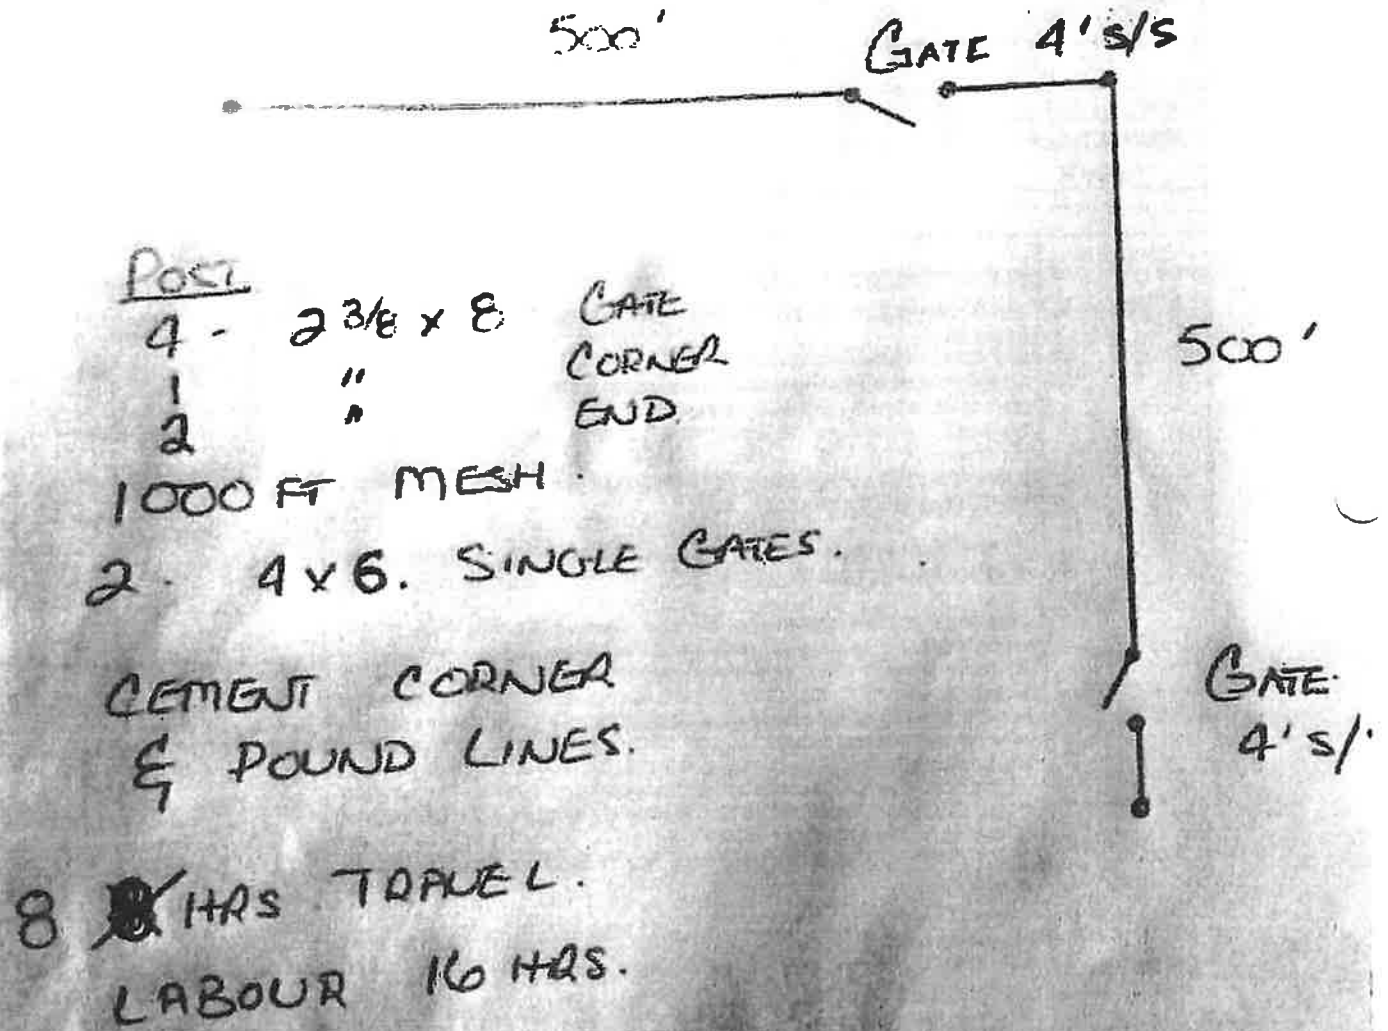 500'
GATE 4' S/S
POST
4 - 2 3/8 x 8 GATE
1 " CORNER
2 " END
500'
1000 FT MESH.
2. 4 x 6. SINGLE GATES.
CEMENT CORNER
& POUND LINES.
GATE.
4' S/
8 HRS TRAVEL.
LABOUR 16 HRS.